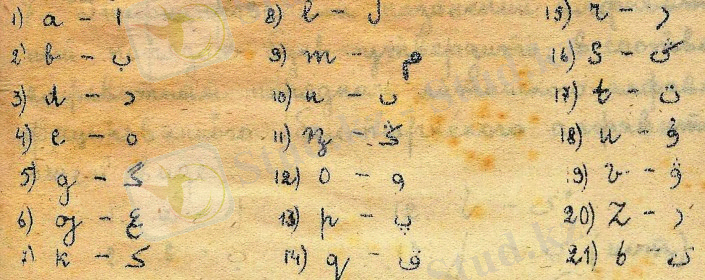 1) a – ا
2) b – ب
3) d – د
4) e – ه
5) g – گ
6) g – ع
7) k – ک
8) l – ل
9) m – م
10) n – ن
11) ŋ – ڭ
12) o – و
13) p – پ
14) q – ق
15) r – ر
16) s –
17) t – ت
18) u – ۇ
19) v – ۋ
20) z – ز
21) b –